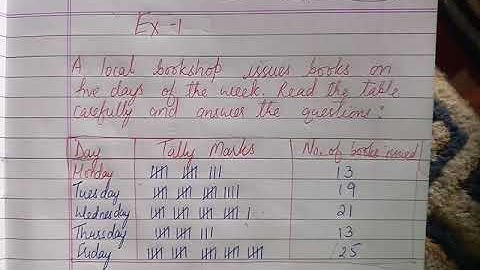 Ex-1
A local bookshop issues books on
five days of the week. Read the table
carefully and answer the questions:
Day Tally Marks No. of books issued
Monday 𝍸 𝍸 ||| 13
Tuesday 𝍸 𝍸 𝍸 |||| 19
Wednesday 𝍸 𝍸 𝍸 𝍸 | 21
Thursday 𝍸 𝍸 ||| 13
Friday 𝍸 𝍸 𝍸 𝍸 𝍸 25